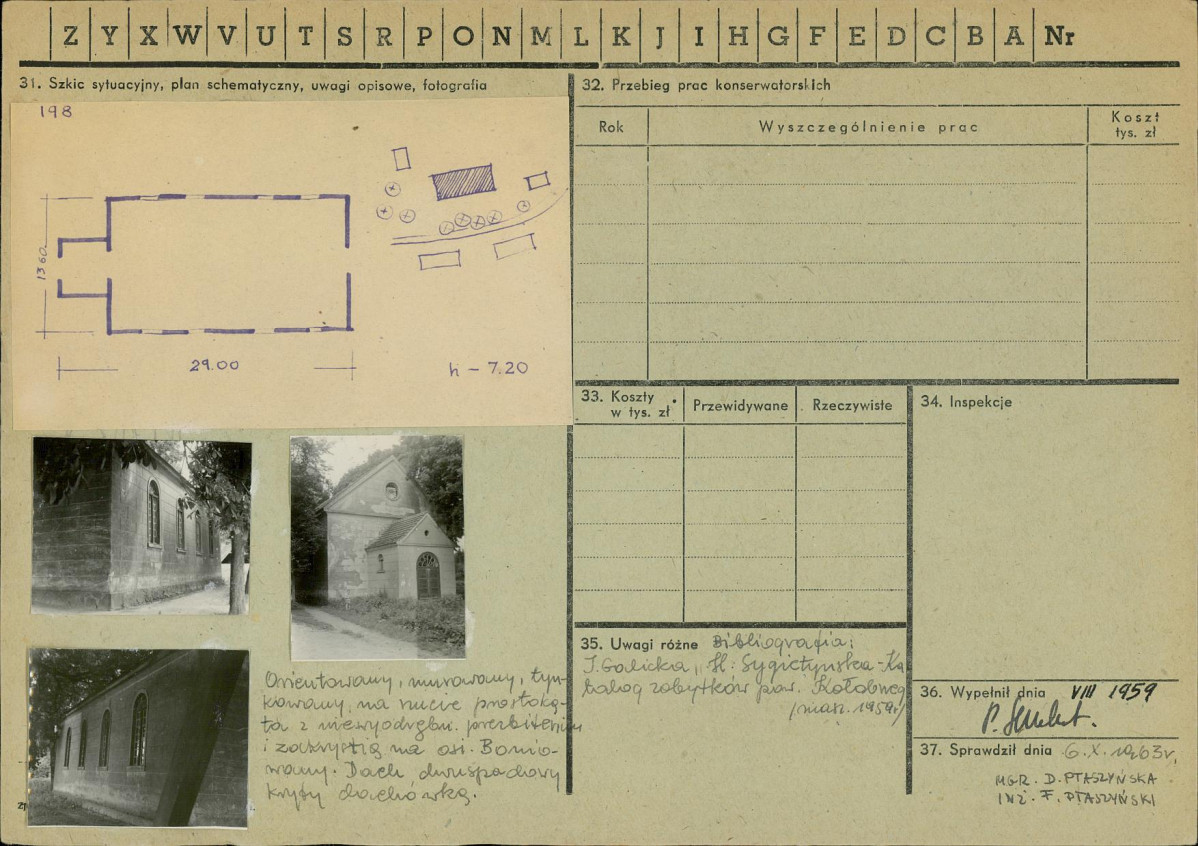 Z Y X W V U T S R P O N M L K J I H G F E D C B A Nr
31. Szkic sytuacyjny, plan schematyczny, uwagi opisowe, fotografia
198
1360
29.00
h – 7.20
Orientowany, murowany, tyn-
kowany, na rzucie prostoką-
ta z niewyodrębn. prezbiterium
i zakrystią na osi. Bonio-
wany. Dach dwuspadowy
kryty dachówką.
32. Przebieg prac konserwatorskich
Rok
Wyszczególnienie prac
Koszt
tys. zł
33. Koszty
w tys. zł
Przewidywane
Rzeczywiste
34. Inspekcje
35. Uwagi różne Bibliografia:
I. Galicka, H. Sygietyńska - Ka
talog zabytków pow. Kołobrzeg
/masz. 1959r/
36. Wypełnił dnia VIII 1959
37. Sprawdził dnia 6.X.1963r.
MGR. D. PTASZYŃSKA
INŻ. F. PTASZYŃSKI